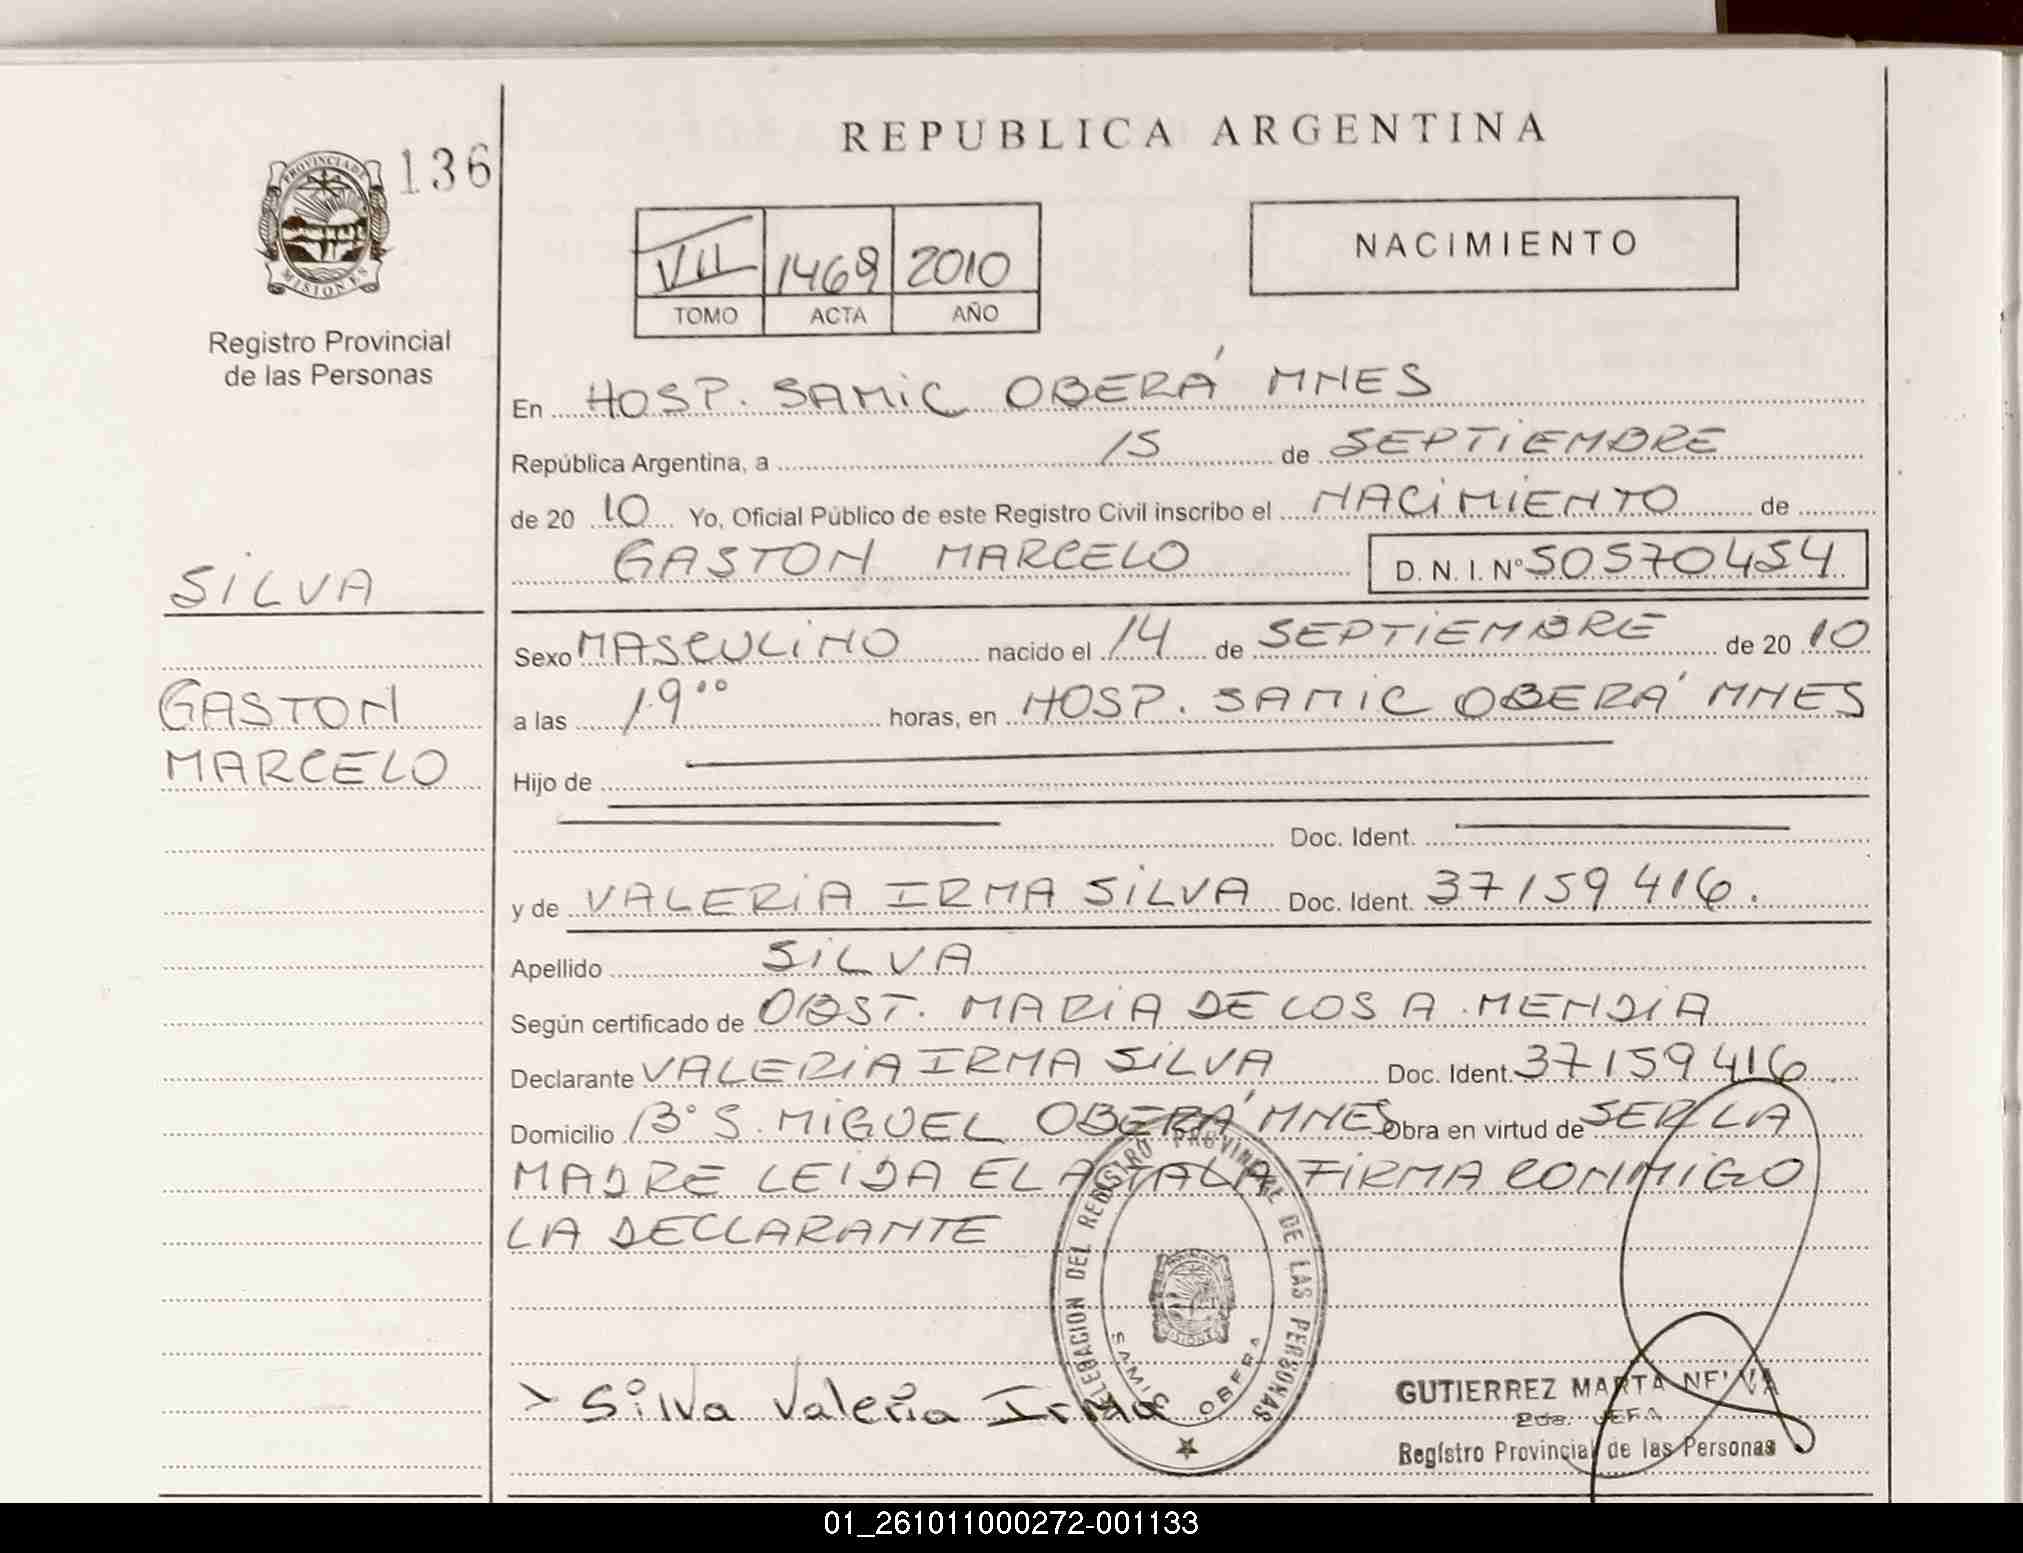 REPUBLICA ARGENTINA
136
PROVINCIA DE
MISIONES
Registro Provincial
de las Personas
VII 1469 2010
TOMO ACTA AÑO
NACIMIENTO
En HOSP. SAMIC OBERÁ MNES
República Argentina, a 15 de SEPTIEMBRE
de 2010 Yo, Oficial Público de este Registro Civil inscribo el NACIMIENTO de
GASTON MARCELO D. N. I. N° 50570454
SILVA
GASTON
MARCELO
Sexo MASCULINO nacido el 14 de SEPTIEMBRE de 2010
a las 19°° horas, en HOSP. SAMIC OBERÁ MNES
Hijo de
Doc. Ident.
y de VALERIA IRMA SILVA Doc. Ident. 37159416.
Apellido SILVA
Según certificado de OBST. MARIA DE LOS A. MENDIA
Declarante VALERIA IRMA SILVA Doc. Ident. 37159416
Domicilio B° S. MIGUEL OBERÁ MNES Obra en virtud de SER LA
MADRE LEIDA EL ACTA LA FIRMA CONMIGO
LA DECLARANTE
DELEGACION DEL REGISTRO PROVINCIAL DE LAS PERSONAS
MISIONES
SAMIC OBERA
Silva Valeria Irma
GUTIERREZ MARTA
JEFA
Registro Provincial de las Personas
01_261011000272-001133